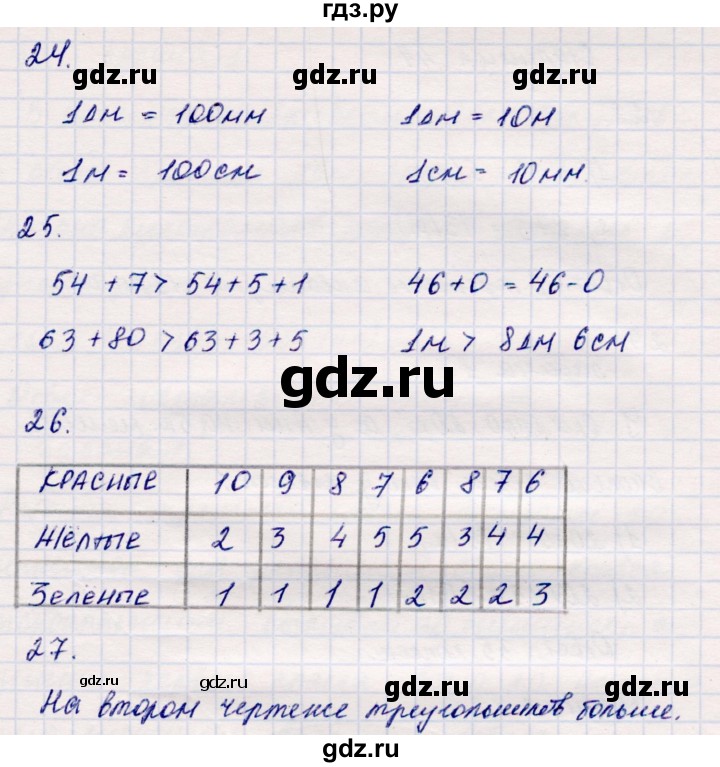 гдз.ру
24.
gdz.ru gdz.ru
1дм = 100мм 1дм = 10м
1м = 100см 1см = 10мм.
gdz.ru gdz.ru
25.
54 + 7 > 54 + 5 + 1 46 + 0 = 46 - 0
63 + 80 > 63 + 3 + 5 1м > 8дм 6см
gdz.ru
26.
КРАСНЫЕ 10 9 8 7 6 8 7 6
gdz.ru gdz.ru
Жёлтые 2 3 4 5 5 3 4 4
Зелёные 1 1 1 1 2 2 2 3
27.
gdz.ru gdz.ru gdz.ru
На втором чертеже треугольников больше.
gdz.ru